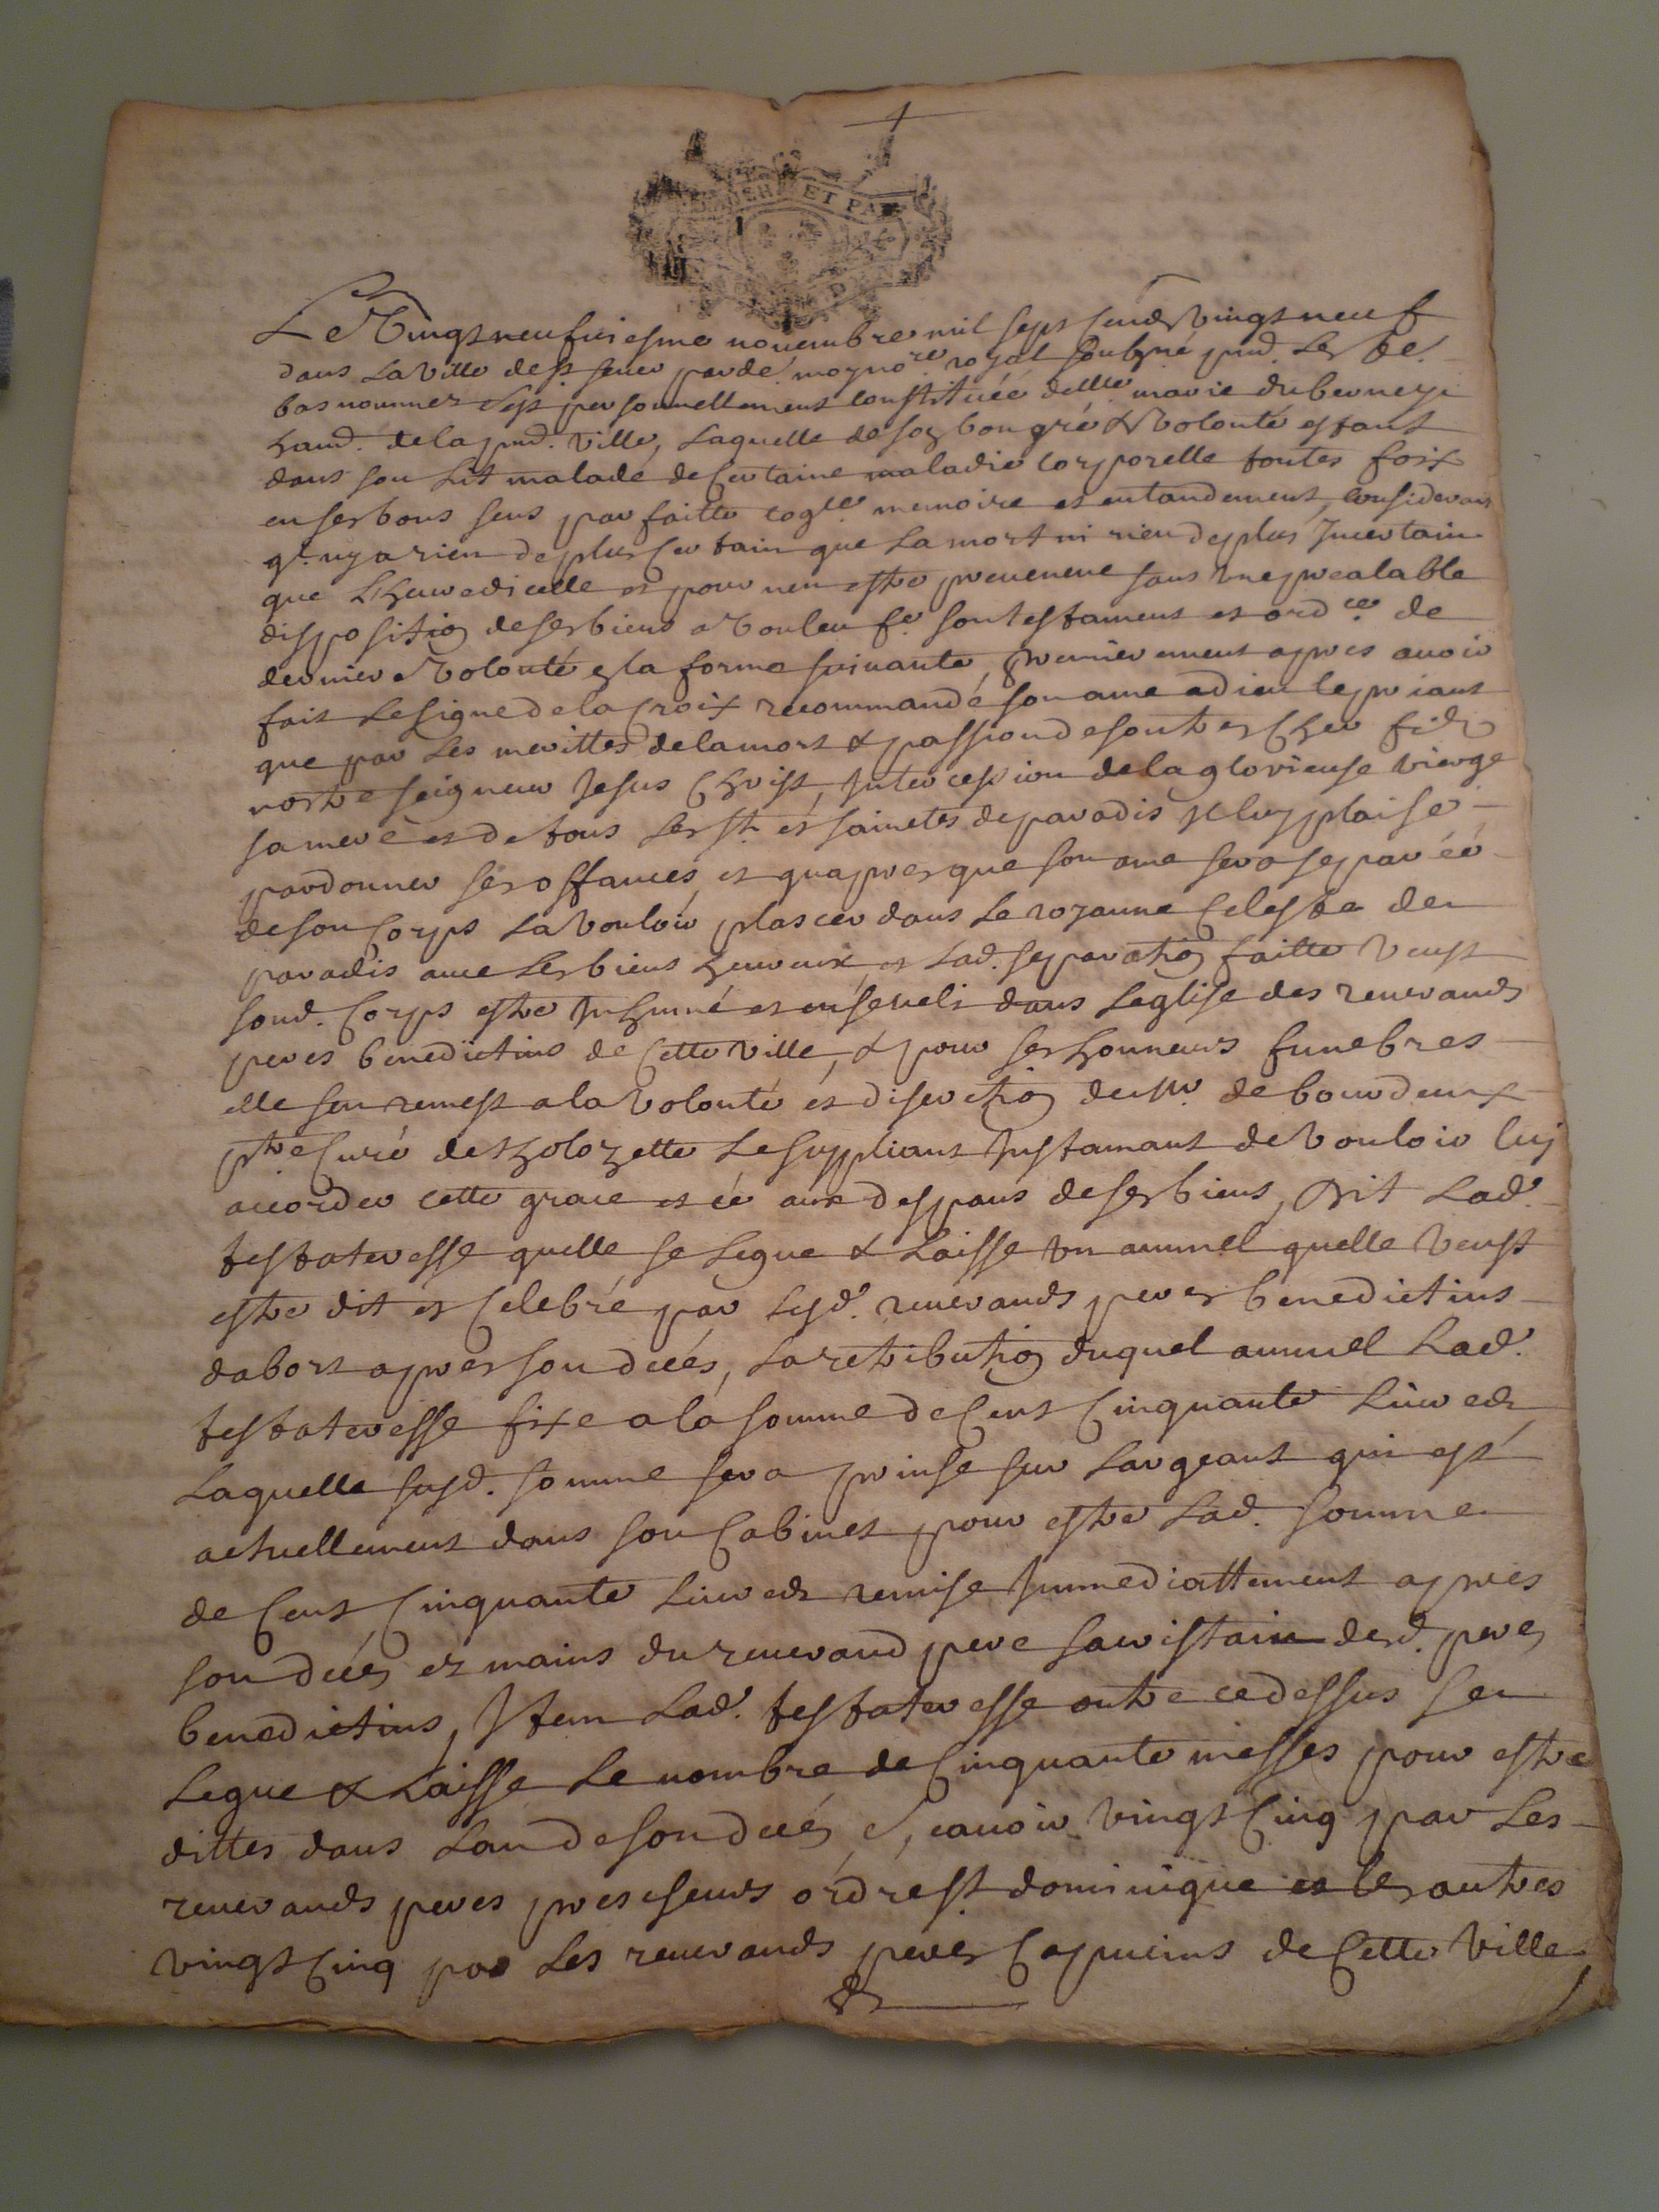 ET PA
Le Vingt neufviesme novembre mil sept cents vingt neuf
dans la ville de st sever par dev. moy no.re royal soubzné pnd. les tes.
bas nommes s'est personnellement constituée dlle marie duberney
habd. de la pnd. ville, laquelle de son bon gré & volonté estant
dans son lit malade de certaine maladie corporelle toutes foix
en ses bons sens parfaitte cog.ce memoire et entandement, considerant
q.l ny a rien de plus certain que la mort ni rien de plus Incertain
que Lheure dicelle et pour nen estre prevenue sans une prealable
disposition de ses biens a vouleu f.e son testament et ord.ce de
derniere volonté en la forme suivante, premierement apres avoir
fait le signe de la Croix recommandé son ame a dieu le priant
que par les merittes de la mort & passion de son tres Cher fils
nostre seigneur Jesus Christ, Intercession de la glorieuse vierge
sa mere et de tous les sts et sainctes de paradis Il luy plaise
pardonner ses offances, et quapres que son ame sera separéé
de son Corps la vouloir plascer dans le royaume Celeste de
paradis avec les biens heureux, et lad. separation faitte veust
sond. Corps estre Inhumé et enseveli dans leglise des reverands
peres benedictins de Cette ville, & pour ses honneurs funebres
elle sen remest a la volonté et discretion du sr. de bourdeaux
ptre Curé de the le supliant Instamant de vouloir luy
accorder cette grace et ce aux despans de ses biens, Dit lad.
testateresse quelle se legue & laisse un annuel quelle veust
estre dit et Celebré par lesd. reverands peres benedictins
dabort apres son decés, la retribution duquel annuel lad.
testateresse fixe a la somme de Cent Cinquante livres
laquelle susd. somme sera prinse sur largeant qui est
actuellement dans son Cabinet pour estre lad. somme
de Cent Cinquante livres remise Immediattement apres
son decés es mains du reverand pere sacristain desd. peres
benedictins, Item lad. testateresse outre ce dessus se
legue & laisse le nombre de Cinquante messes pour estre
dittes dans lan de son decés, scavoir vingt Cinq par les
reverands peres prescheurs ordre st. dominique et les autres
vingt Cinq par les reverands peres Capucins de Cette ville